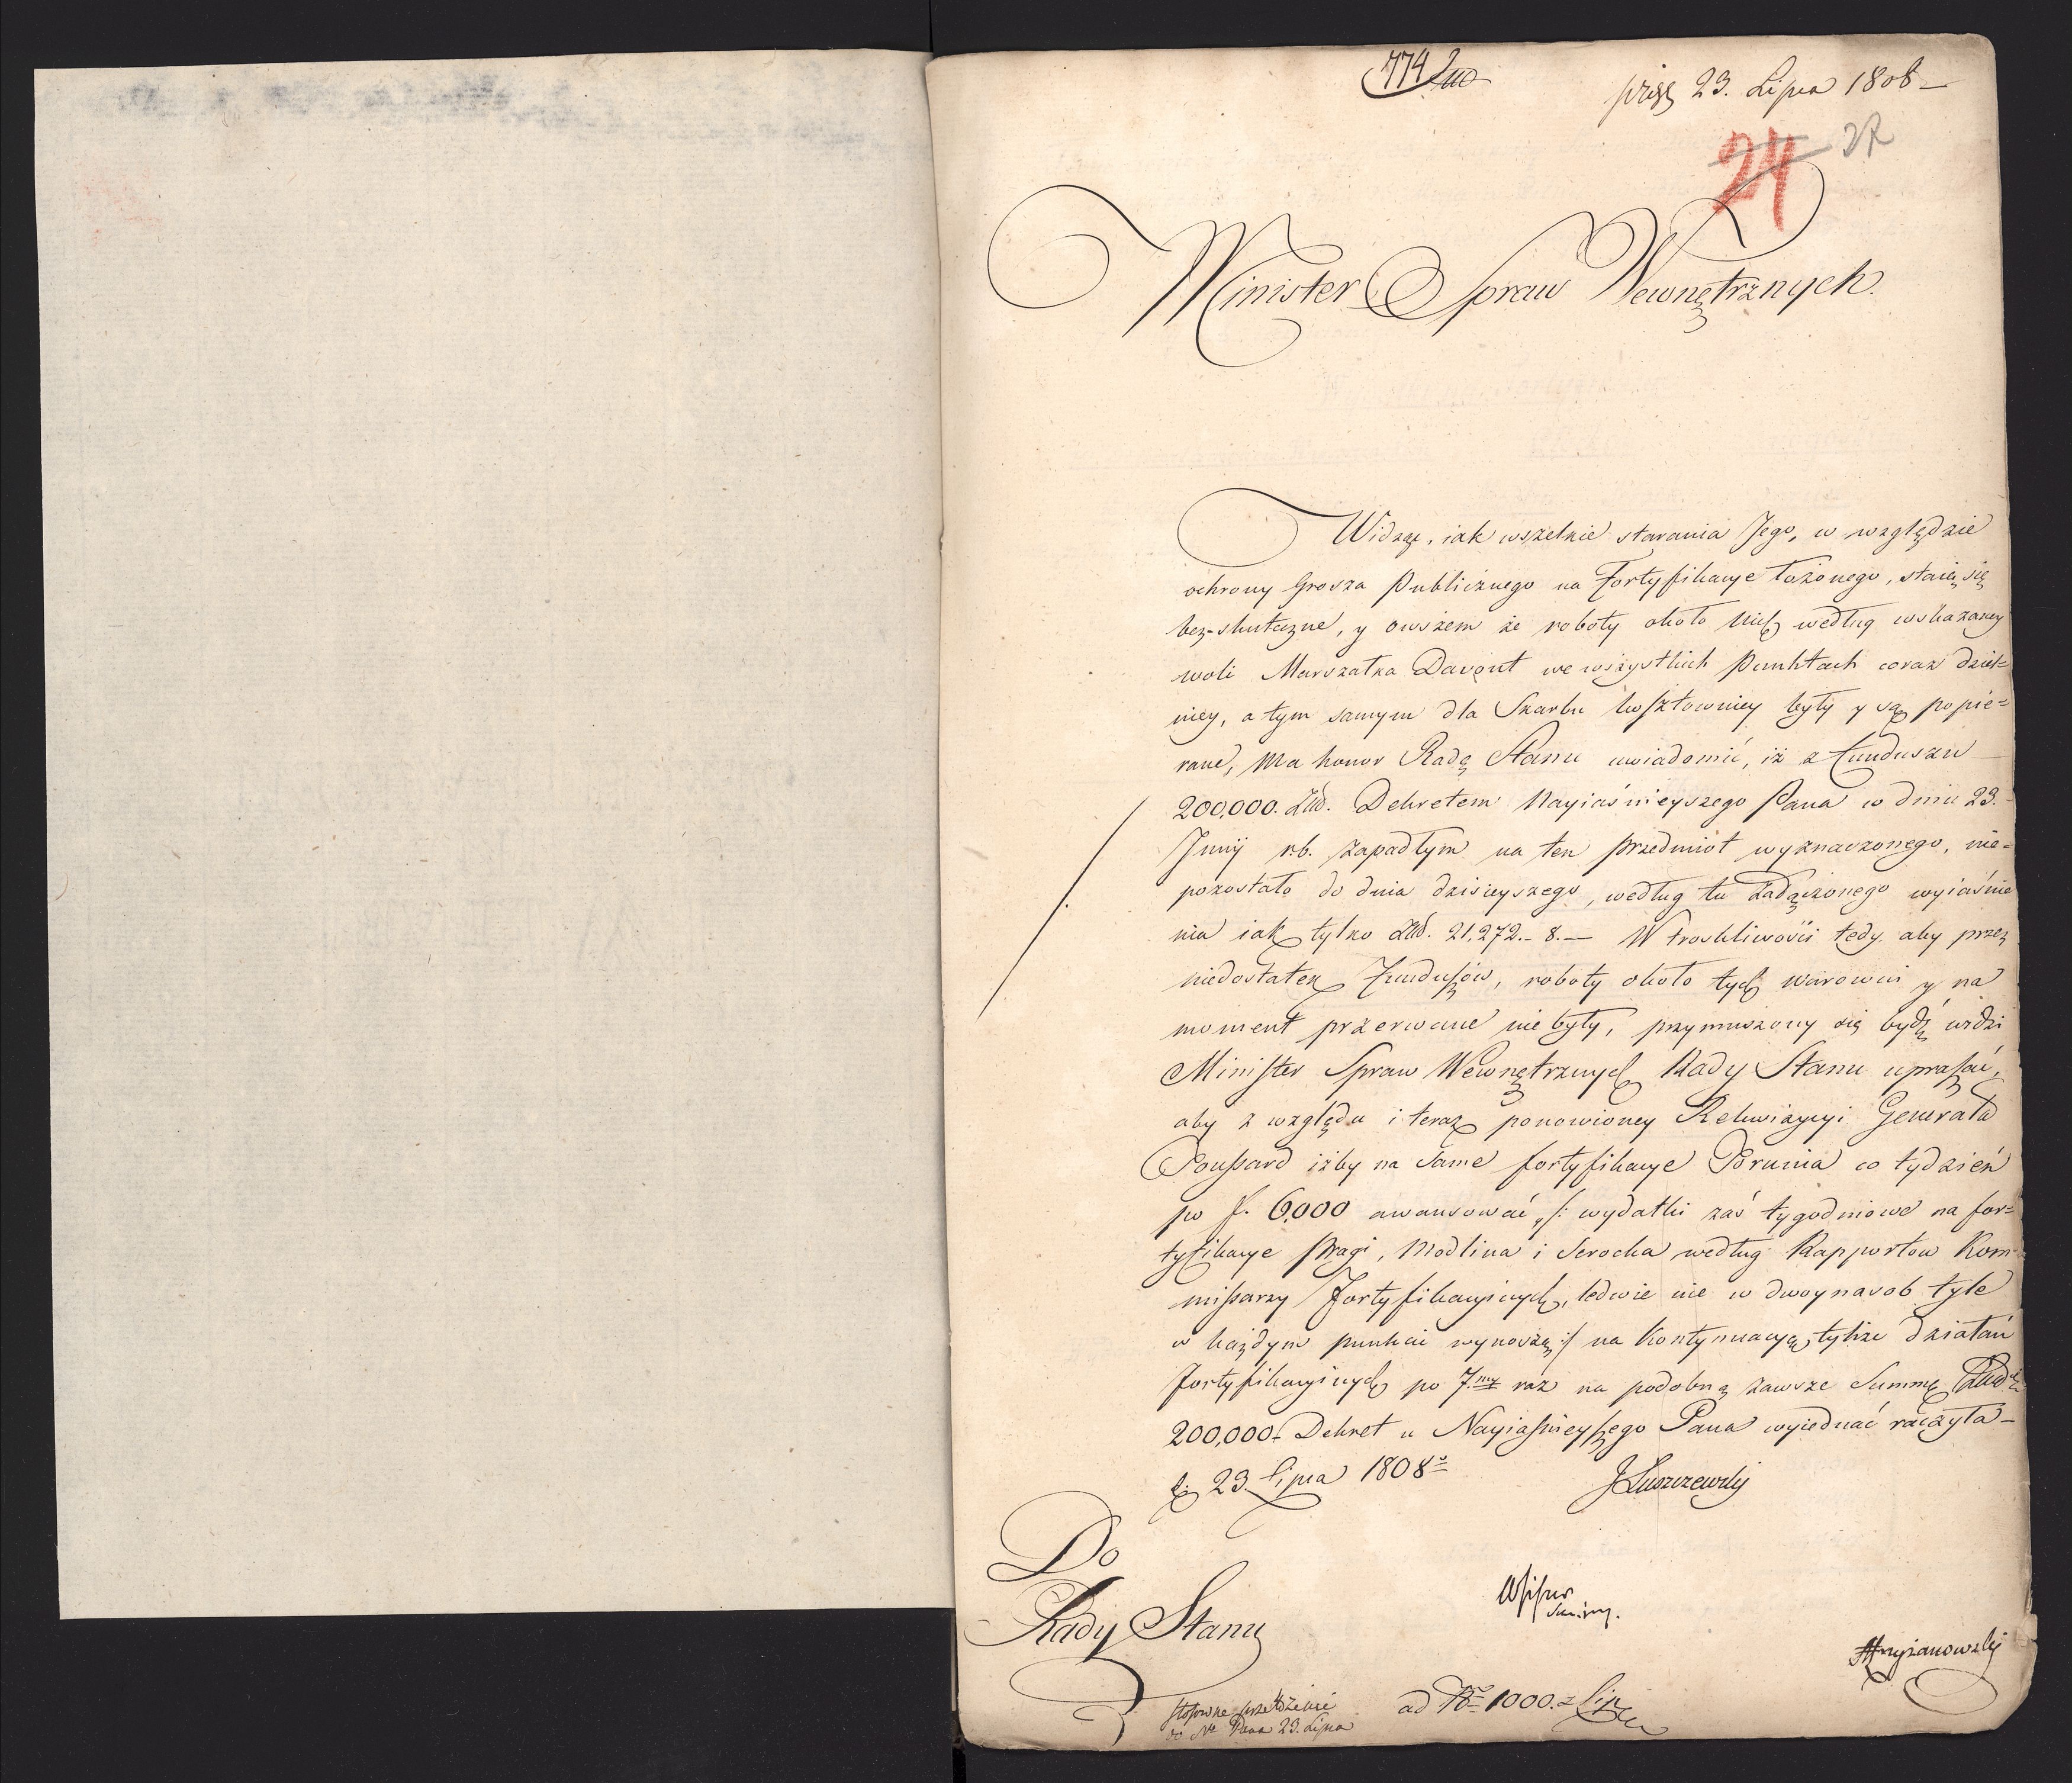 774
23. Lipca 1808
24 27
Minister Spraw Wewnętrznych.
Widząc, iak wszelkie starania Jego, w względzie
ochrony Grosza Publicznego na Fortyfikacye łożonego, staią się
bez-skuteczne, y owszem że roboty około nich według wskazaney
woli Marszałka Davout we wszystkich Punktach coraz dziel=
niey, a tym samym dla Skarbu kosztowniey były y są popie=
rane, Ma honor Radę Stanu uwiadomić, iż z Funduszu
200,000. Zło. Dekretem Nayiaśnieyszego Pana w dniu 23.
Junij r.b. zapadłym na ten przedmiot wyznaczonego, nie=
pozostało do dnia dzisieyszego, według tu załączonego wyiaśnie
nia iak tylko Zło. 21,272.- 8.— W troskliwości tedy aby przez
niedostatek Funduszów, roboty około tych warowni y na
moment przerwane nie były, przymuszony się bydź widzi
Minister Spraw Wewnętrznych Rady Stanu upraszać,
aby z względu i teraz ponowioney Rekwizycyi Generała
Poussard iżby na same fortyfikacye Torunia co tydzień
po f. 6,000 awansować, /: wydatki zaś tygodniowe na for=
tyfikacye Pragi, Modlina i Serocka według Rapportow Kom=
missarzy Fortyfikacyinych, ledwie nie w dwoynasob tyle
w każdym punkcie wynoszą :/ na kontynuacyą tychże działań
fortyfikacyinych po 7.my raz na podobną zawsze Summę
200,000. Dekret u Nayiaśnieyszego Pana wyiednać raczyła—
d. 23. Lipca 1808
J Łuszczewski
Do
Rady Stanu
Krzyżanowski
Stosowne przełożenie
do N. Pana 23. Lipca
ad 1000. z Lipca